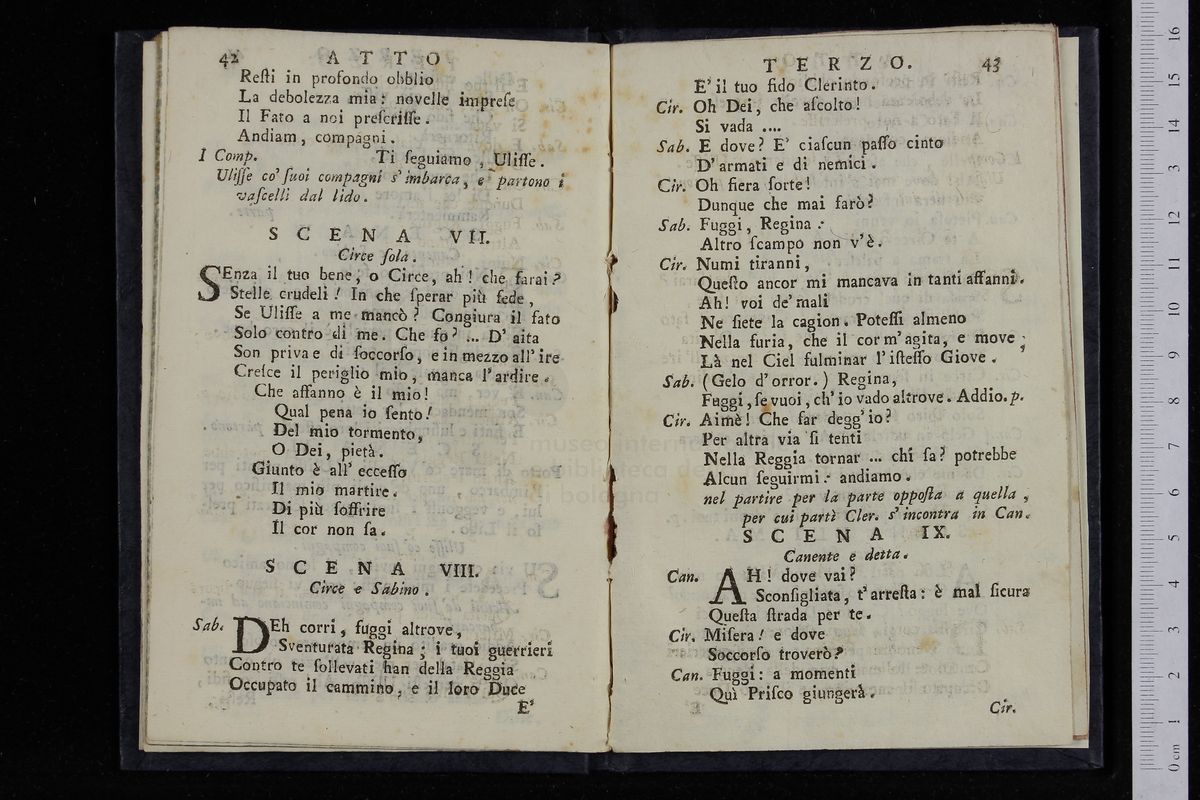 42 ATTO
Reſti in profondo obblio
La debolezza mia: novelle impreſe
Il Fato a noi preſcriſſe.
Andiam, compagni.
I Comp. Ti ſeguiamo, Uliſſe.
Uliſſe co' ſuoi compagni s'imbarca, e partono i
vaſcelli dal lido.
SCENA VII.
Circe ſola.
SEnza il tuo bene, o Circe, ah! che farai?
Stelle crudeli! In che ſperar più fede,
Se Uliſſe a me mancò? Congiura il fato
Solo contro di me. Che fo? ... D' aita
Son priva e di ſoccorſo, e in mezzo all' ire
Creſce il periglio mio, manca l'ardire.
Che affanno è il mio!
Qual pena io ſento!
Del mio tormento,
O Dei, pietà.
Giunto è all' ecceſſo
Il mio martire.
Di più ſoffrire
Il cor non ſa.
SCENA VIII.
Circe e Sabino.
Sab. DEh corri, fuggi altrove,
Sventurata Regina; i tuoi guerrieri
Contro te ſollevati han della Reggia
Occupato il cammino, e il loro Duce
E'
TERZO. 43
E' il tuo fido Clerinto.
Cir. Oh Dei, che aſcolto!
Si vada ....
Sab. E dove? E' ciaſcun paſſo cinto
D' armati e di nemici.
Cir. Oh fiera ſorte!
Dunque che mai farò?
Sab. Fuggi, Regina:
Altro ſcampo non v'è.
Cir. Numi tiranni,
Queſto ancor mi mancava in tanti affanni.
Ah! voi de' mali
Ne ſiete la cagion. Poteſſi almeno
Nella furia, che il cor m'agita, e move;
Là nel Ciel fulminar l'iſteſſo Giove.
Sab. (Gelo d'orror.) Regina,
Fuggi, ſe vuoi, ch' io vado altrove. Addio. p.
Cir. Aimè! Che far degg' io?
Per altra via ſi tenti
Nella Reggia tornar ... chi ſa? potrebbe
Alcun ſeguirmi: andiamo.
nel partire per la parte oppoſta a quella,
per cui partì Cler. s'incontra in Can.
SCENA IX.
Canente e detta.
Can. AH! dove vai?
Sconſigliata, t'arreſta: è mal ſicura
Queſta ſtrada per te.
Cir. Miſera! e dove
Soccorſo troverò?
Can. Fuggi: a momenti
Quì Priſco giungerà.
Cir.
museo
biblioteca de
di bologna
0 cm 1 2 3 4 5 6 7 8 9 10 11 12 13 14 15 16